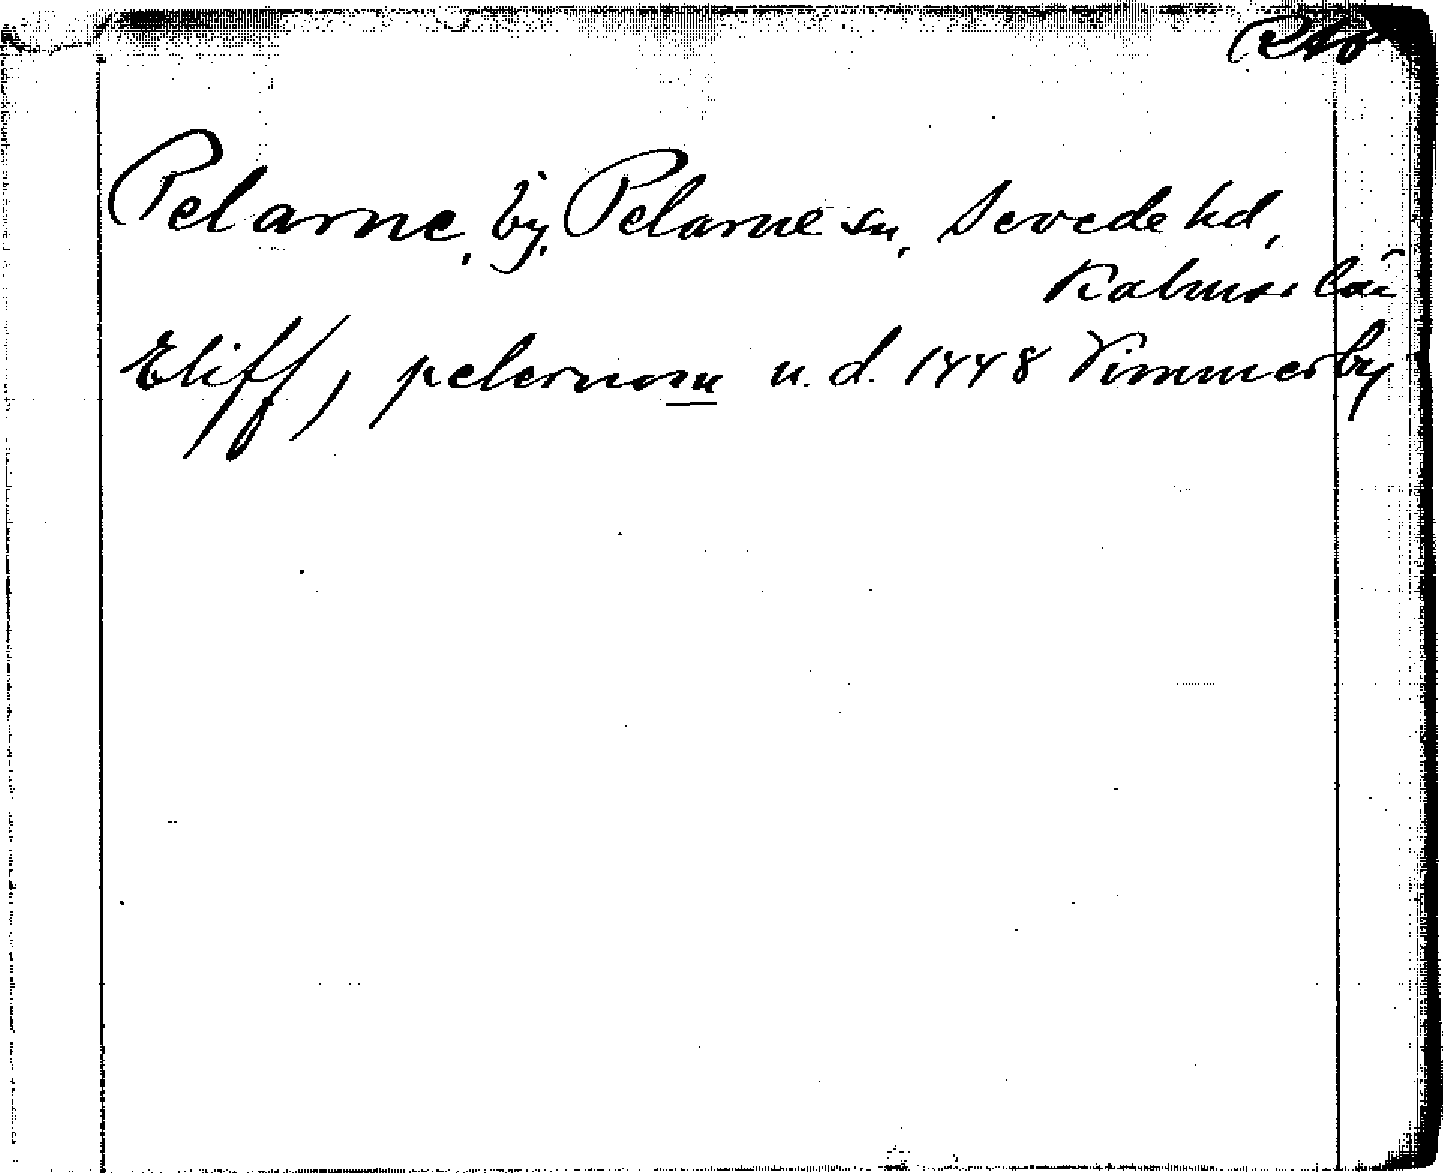 Pelarne, by, Pelarne sn, Sevede hd,
Kalmar län
Eliff, pelernom u. d. 1448 Vimmerby